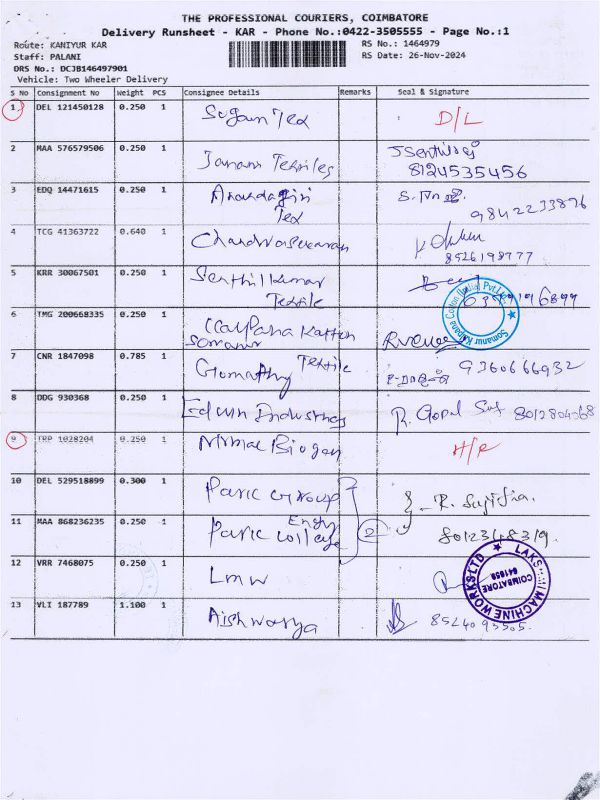 THE PROFESSIONAL COURIERS, COIMBATORE
Delivery Runsheet - KAR - Phone No.:0422-3505555 - Page No.:1
Route: KANIYUR KAR RS No.: 1464979
Staff: PALANI RS Date: 26-Nov-2024
DRS No.: DCJB146497901
Vehicle: Two Wheeler Delivery
S No Consignment No Weight PCS Consignee Details Remarks Seal & Signature
1 DEL 121450128 0.250 1 Sugan Tex D/L
2 MAA 576579506 0.250 1 Janani Textiles JSenthilraj
8124535456
3 EDQ 14471615 0.250 1 Anandagiri
Tex 9842233876
4 TCG 41363722 0.640 1 Chandrasekaran
8526198777
5 KRR 30067501 0.250 1 Senthilkumar
Textile
6 TMG 200668335 0.250 1 Kalpana Cotton
Somanur
Somanur Kalpana Cotton (India) Pvt Ltd
7 CNR 1847098 0.785 1 Gomathy Textile 9360666932
8 DDG 930368 0.250 1 Edwin Industries R. Gopal 8012804568
9 TRP 1028204 0.250 1 Nirmal Biogen H/R
10 DEL 529518899 0.300 1 Park Group R. Sujitha.
11 MAA 868236235 0.250 1 Park Engg College 2 8012348319.
12 VRR 7468075 0.250 1 LMW
MACHINE WORKS LTD COIMBATORE
13 VLI 187789 1.100 1 Aishwarya 8524093505.